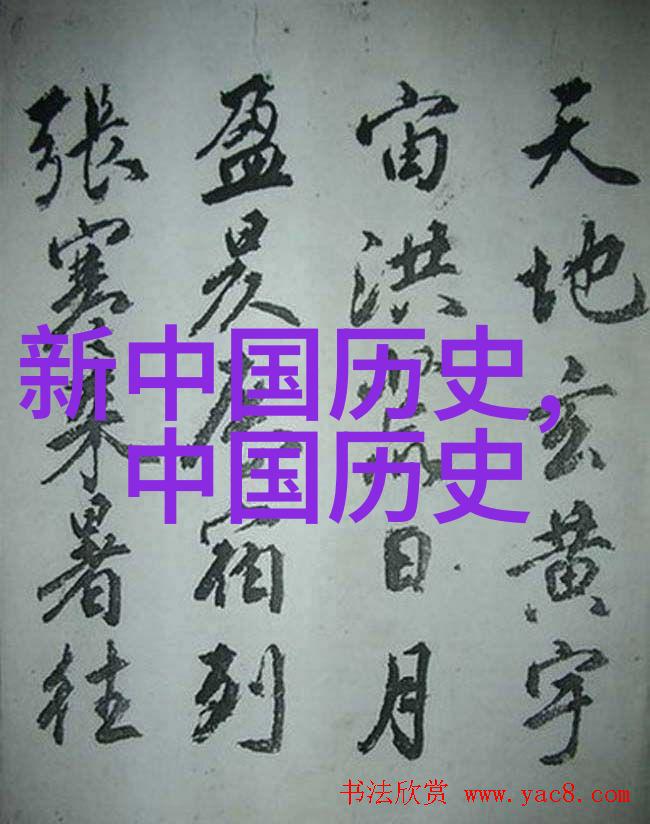 天地玄黄宇
宙洪日月
盈昃宿列
張寒来暑往
新中国历史,
中国历史
书法欣赏 www.yac8.com